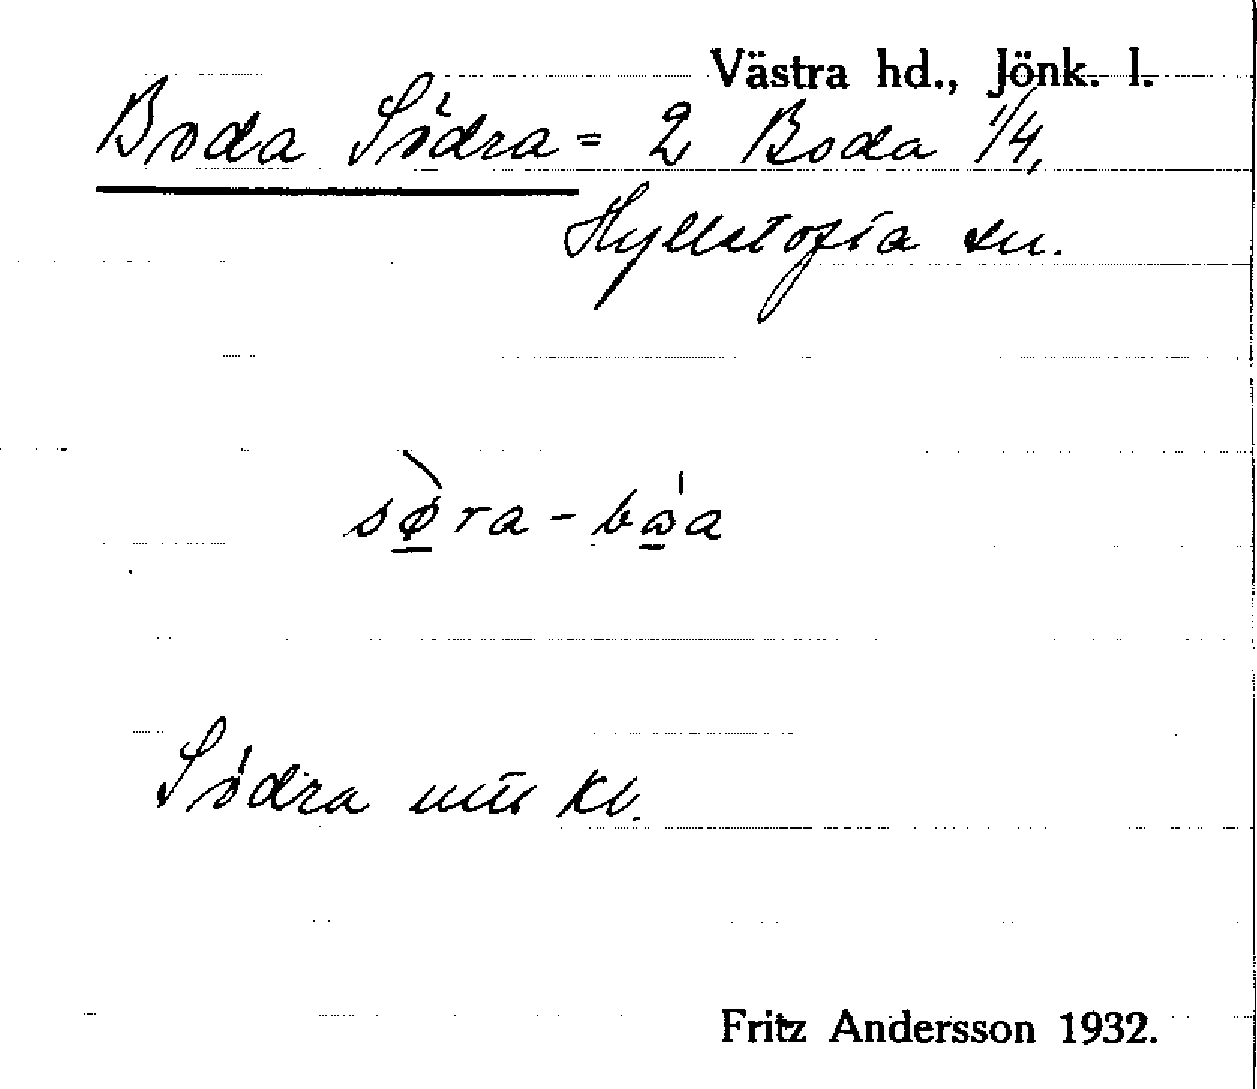 Västra hd., Jönk. l.
Boda Södra = 2 Boda 1/4,
Hylletofta sn.
sø̱̀ra - bώ̱a
Södra
Fritz Andersson 1932.